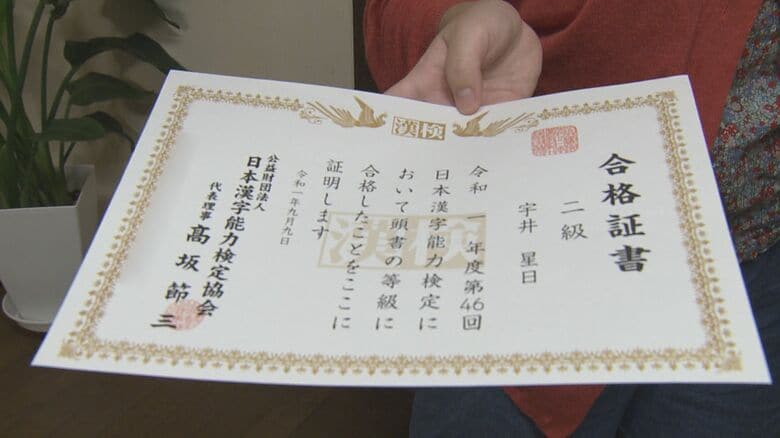 漢検
合格証書
二級
宇井 星日
令和 一 年度第46回
日本漢字能力検定に
おいて頭書の等級に
合格したことをここに
証明します
令和一年九月九日
公益財団法人
日本漢字能力検定協会
代表理事 髙坂 節三
漢検